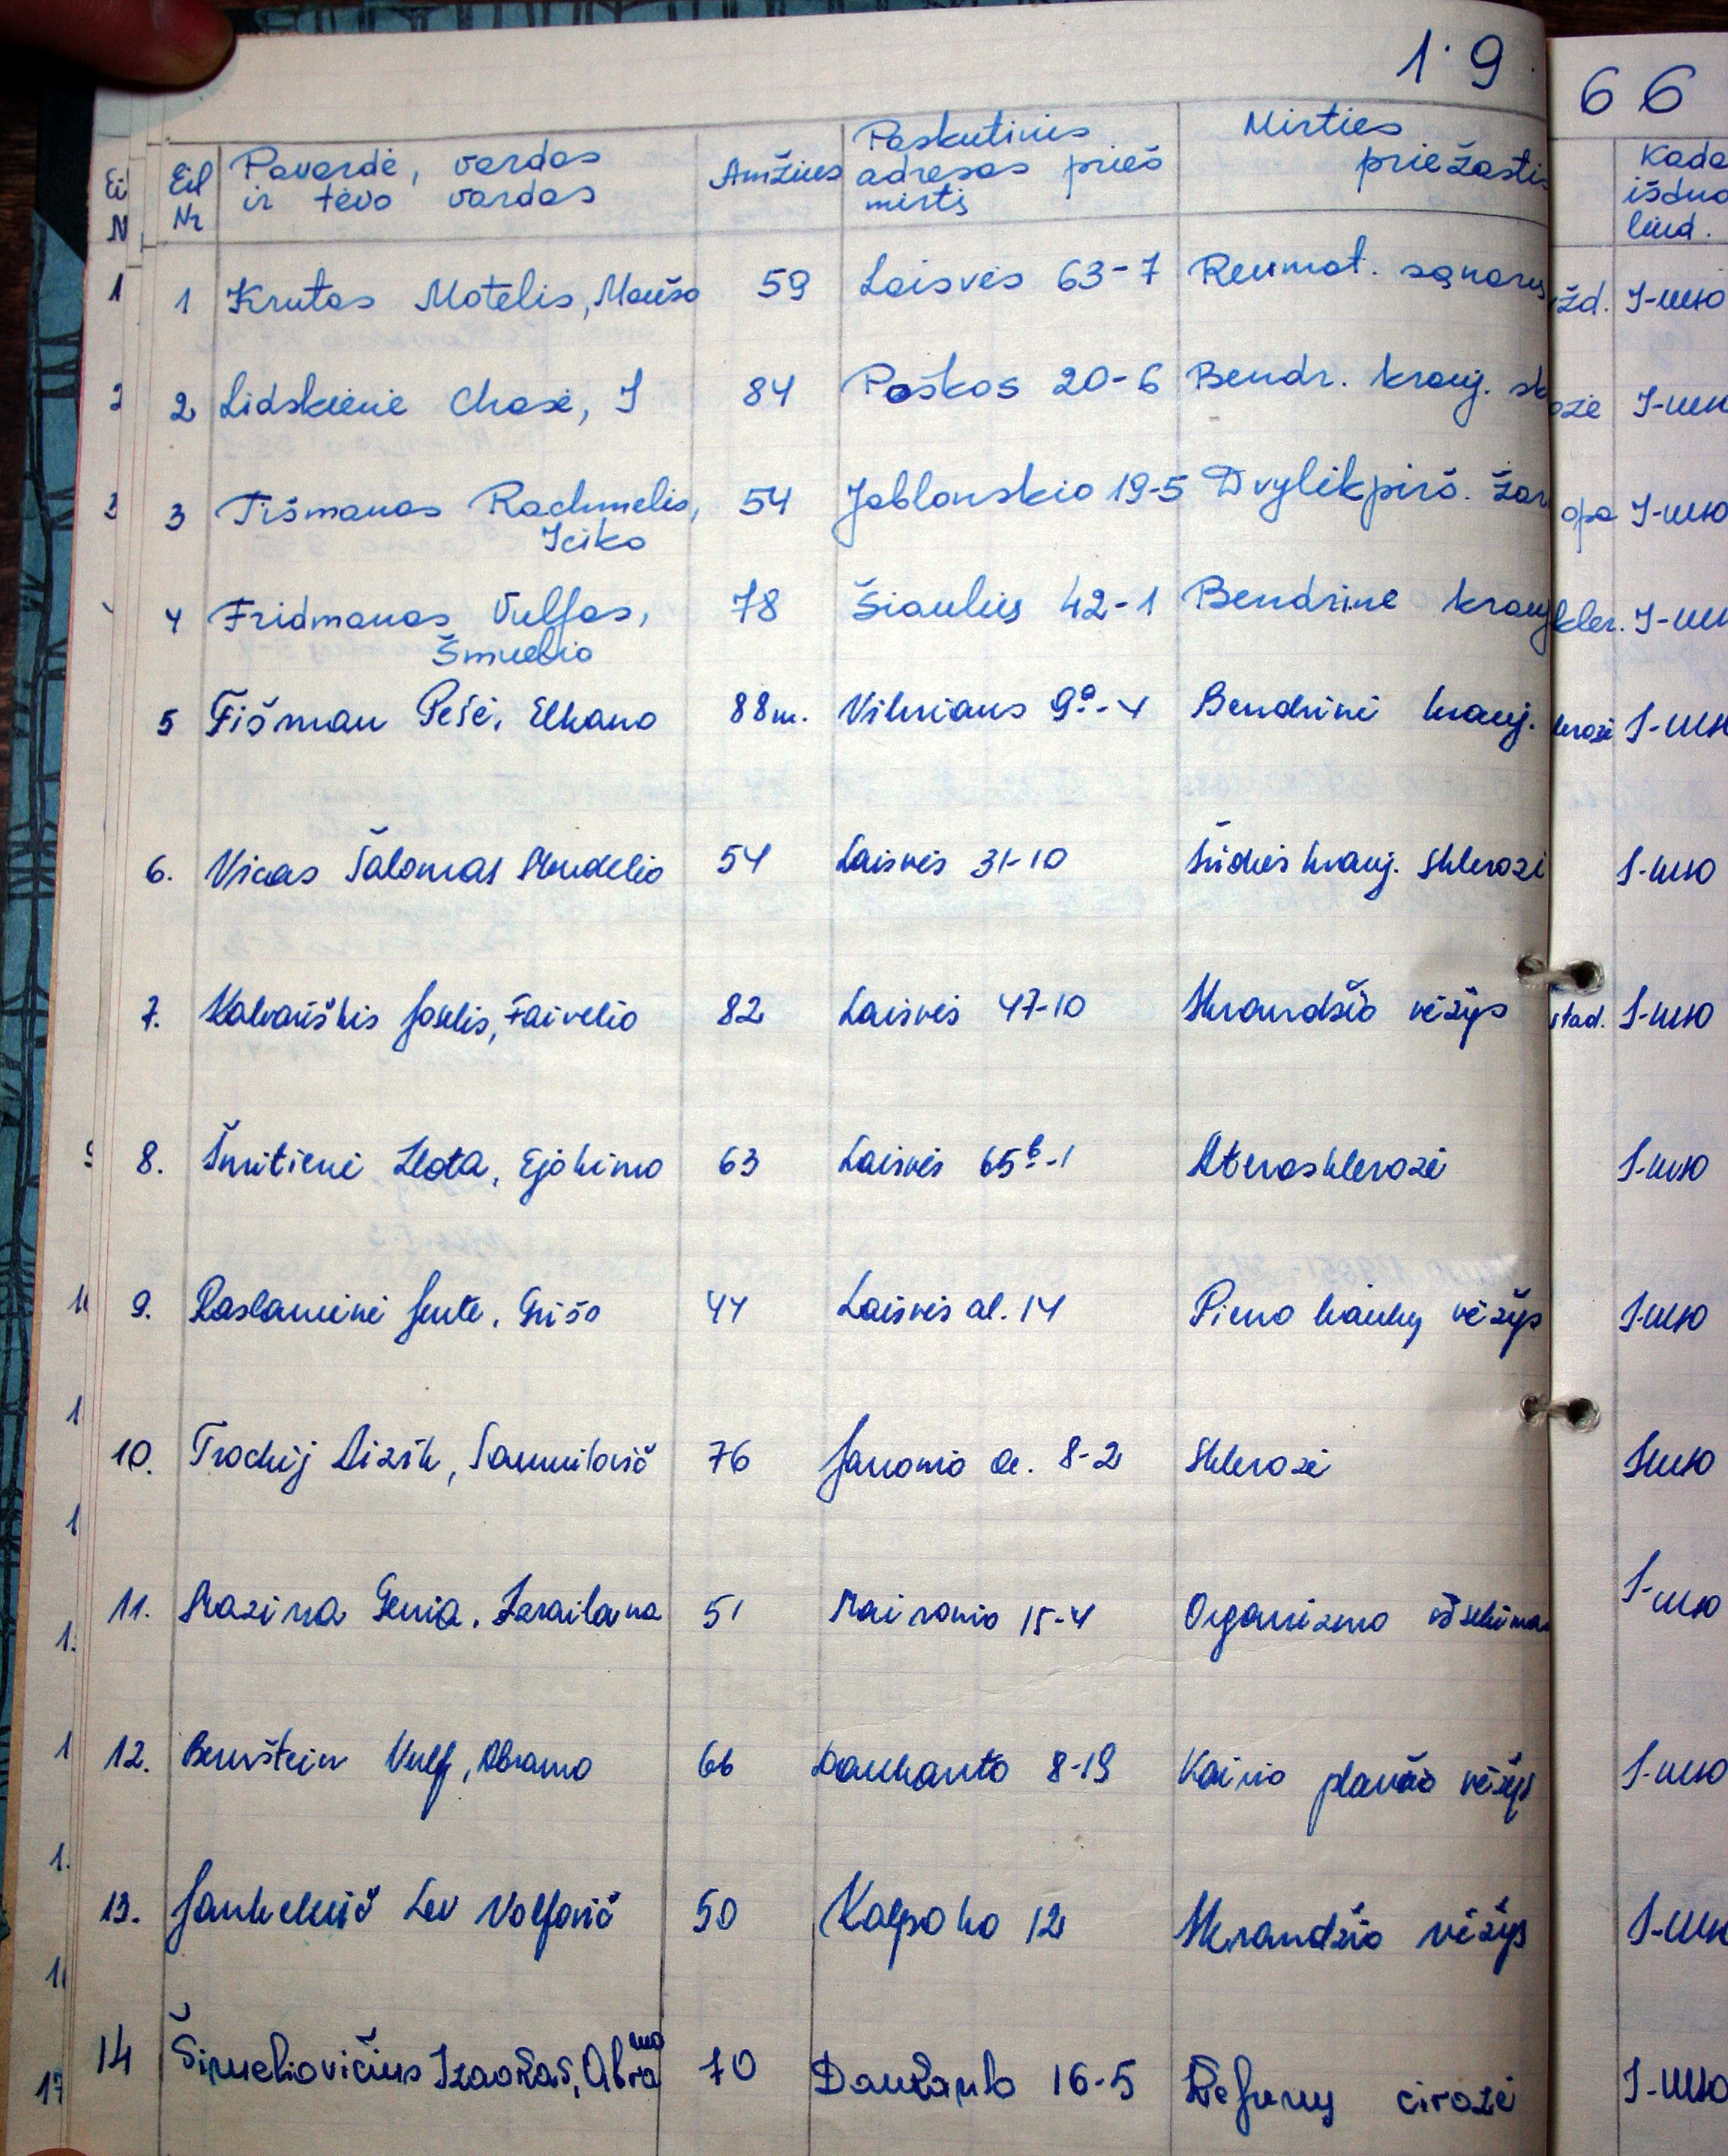 19 66
Eil Nr Pavardė, vardas ir tėvo vardas Amžius Paskutinis adresas prieš mirtį Mirties priežastis Kada išduo liud.
1 Krutas Motelis, Maušo 59 Laisvės 63-7 Reumat. sąnarių žd. I-mio
2 Lidskienė Chasė, I 84 Poškos 20-6 Bendr. krauj. sk ozė
3 Fišmanas Rachmelis, 54 Jablonskio 19-5 Dvylikpirš. žar opa
Iciko
4 Fridmanas Vulfas, 78 Šiaulių 42-1 Bendrinė krauj kler.
Šmuelio
5 Fišman Pešė, Elkano 88m. Vilniaus 9a-4 Bendrinė krauj. lerozė
6. Vicas Šalomas Mendelio 54 Laisvės 31-10 Širdies krauj. sklerozė
7. Kalvariškis Joselis, Faivelio 82 Laisvės 47-10 Skrandžio vėžys stad.
8. Šmitienė Zlota, Ejokimo 63 Laisvės 65b-1 Aterosklerozė
9. Raslanienė Jente, Grišo 44 Laisvės al. 14 Pieno liaukų vėžys
10. Trockij Aizik, Samuilovič 76 Janonio 8-2 Sklerozė
11. Mazina Genia, Izrailovna 51 Maironio 15-4 Organizmo
12. Bernštein Vulf, Abramo 66 Daukanto 8-19 Kairio plaučio vėžys
13. Jankelevič Lev Volfovič 50 Kapsoko 12 Skrandžio vėžys
14 Šimeliovičius Izaokas, Abramo 70 Daukanto 16-5 Kefenų cirozė